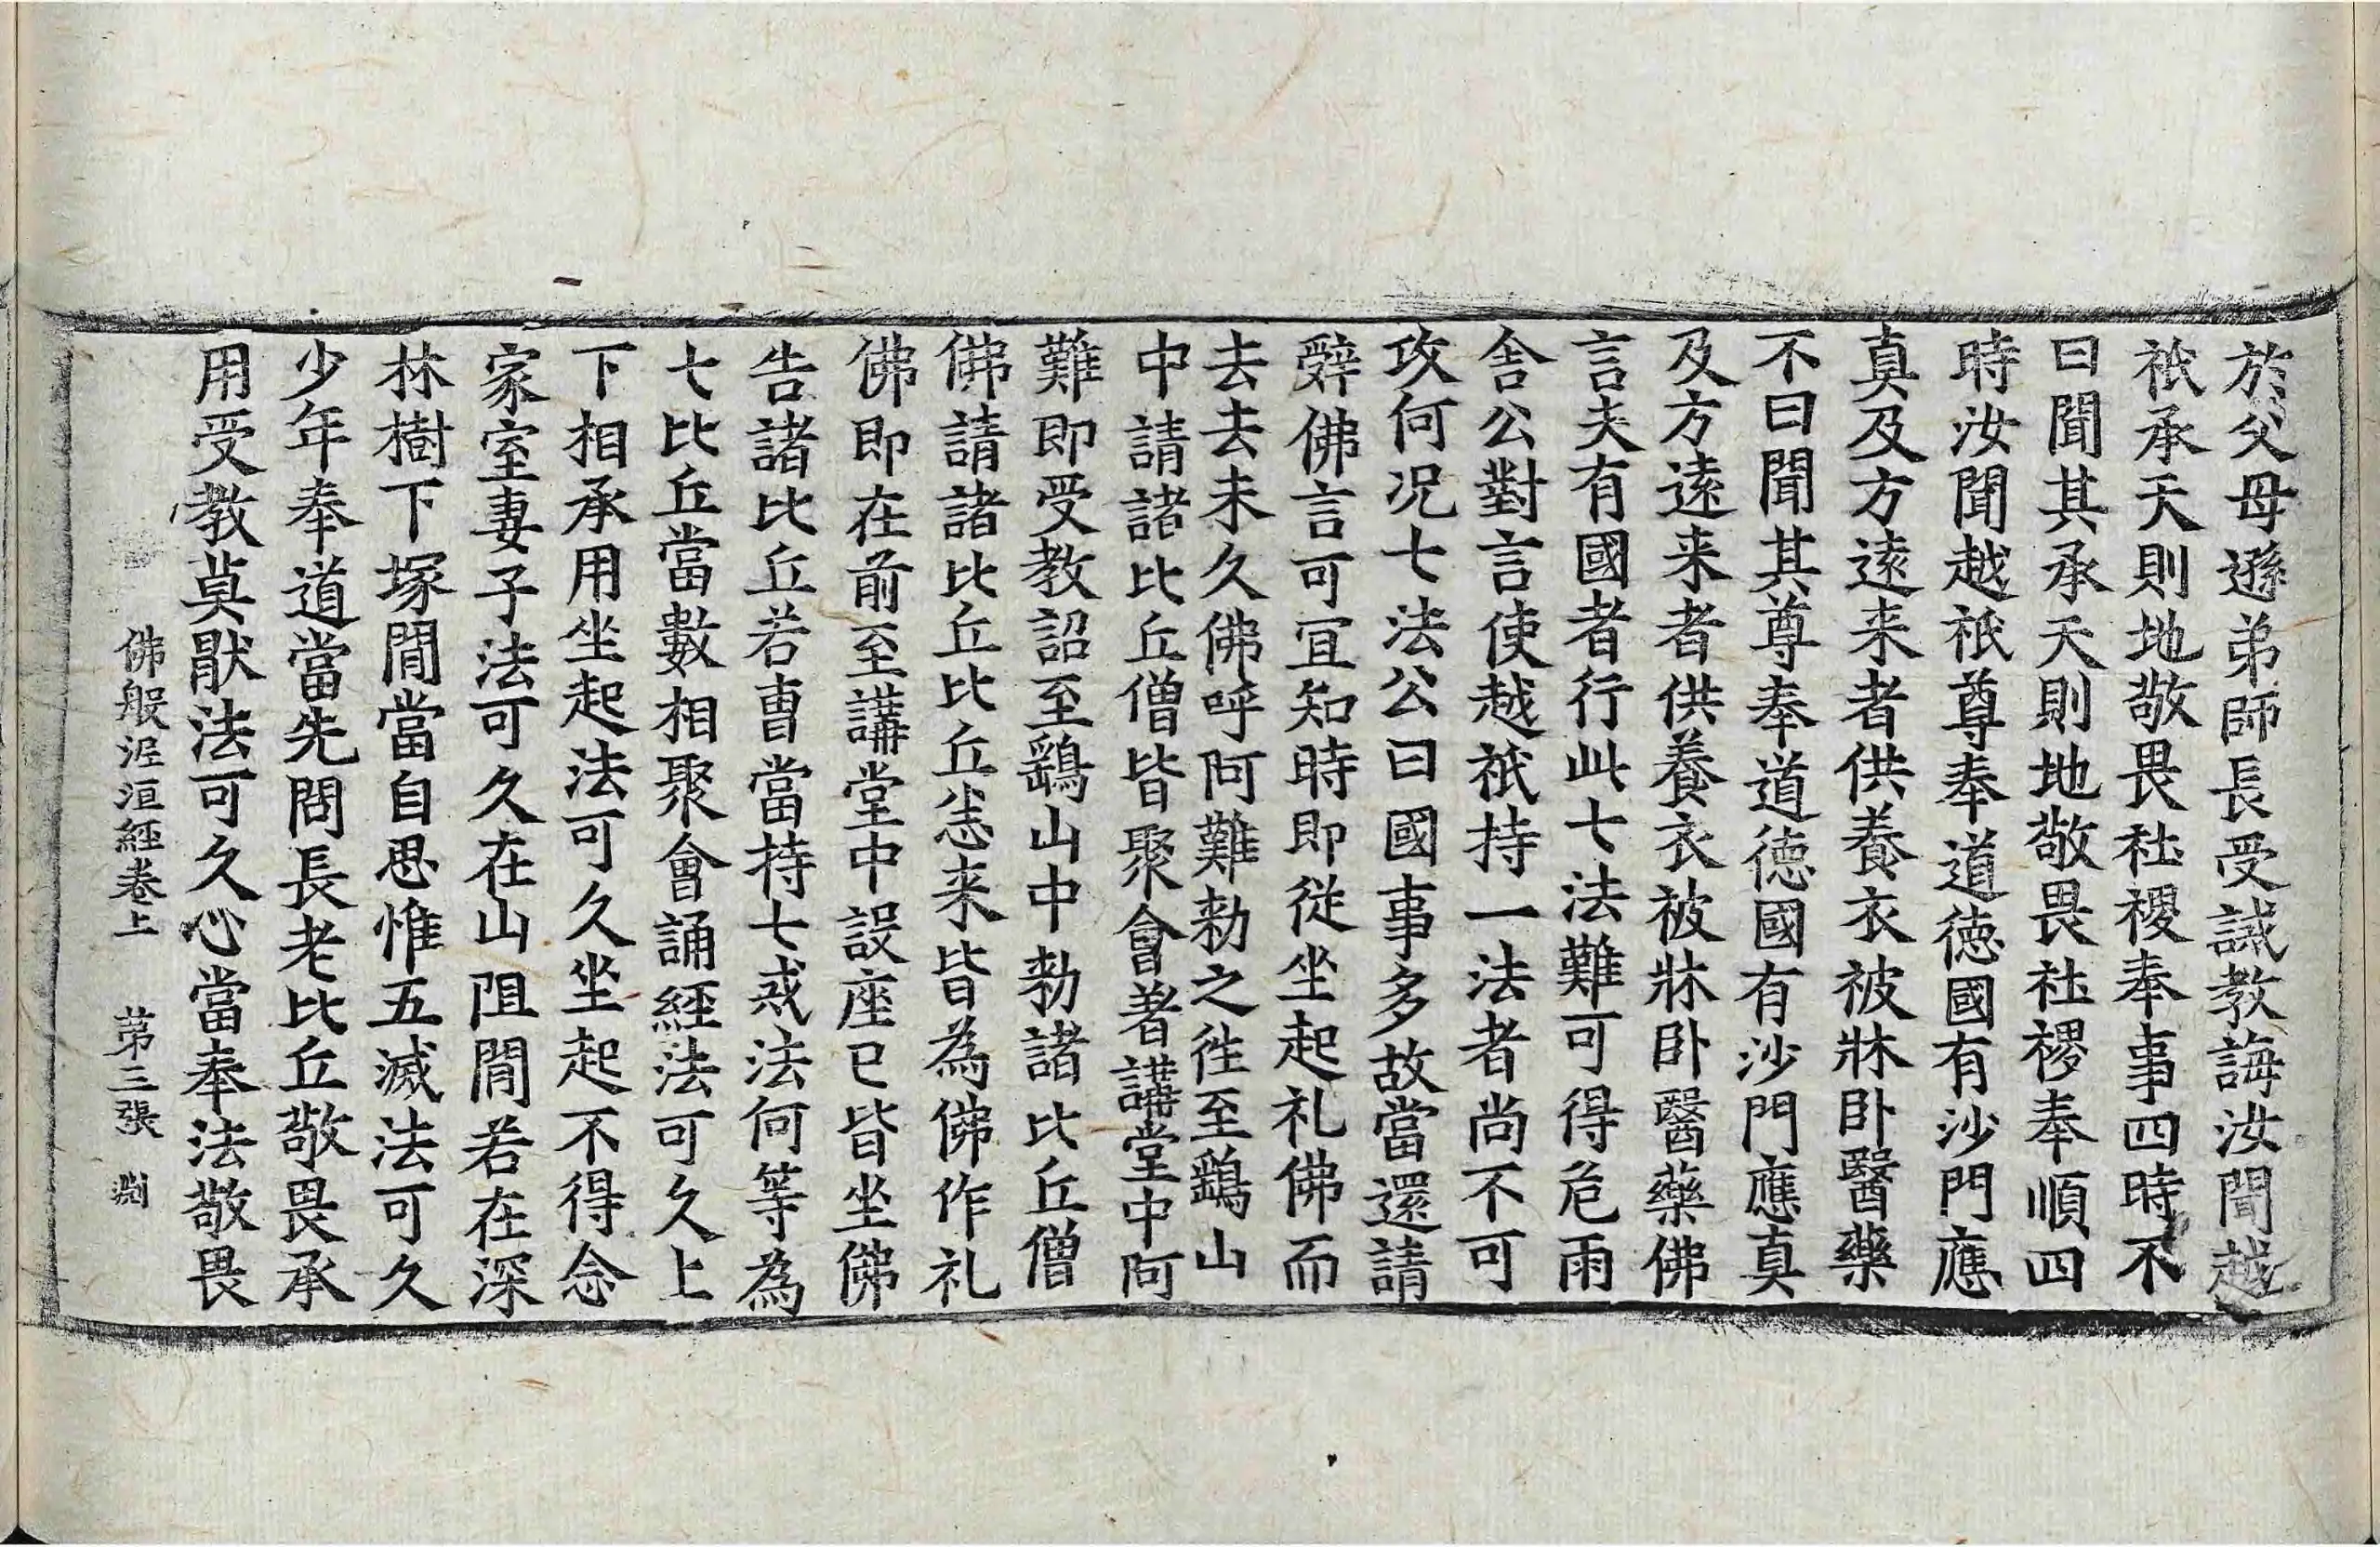 於父母遜弟師長受誡教誨汝聞越
祇承天則地敬畏社稷奉事四時不
曰聞其承天則地敬畏社稷奉順四
時汝聞越祇尊奉道德國有沙門應
真及方遠来者供養衣被牀卧醫藥
不曰聞其尊奉道德國有沙門應真
及方遠来者供養衣被牀卧醫藥佛
言夫有國者行此七法難可得危雨
舍公對言使越祇持一法者尚不可
攻何况七法公曰國事多故當還請
辤佛言可宜知時即從坐起礼佛而
去去未久佛呼阿難勑之徃至鷂山
中請諸比丘僧皆聚會著講堂中阿
難即受教詔至鷂山中勑諸比丘僧
佛請諸比丘比丘恙来皆為佛作礼
佛即在前至講堂中設座已皆坐佛
告諸比丘若曹當持七戒法何等為
七比丘當數相聚會誦經法可久上
下相承用坐起法可久坐起不得念
家室妻子法可久在山阻閒若在深
林樹下塚閒當自思惟五滅法可久
少年奉道當先問長老比丘敬畏承
用受教莫猒法可久心當奉法敬畏
佛般泥洹經卷上 第三張 渕